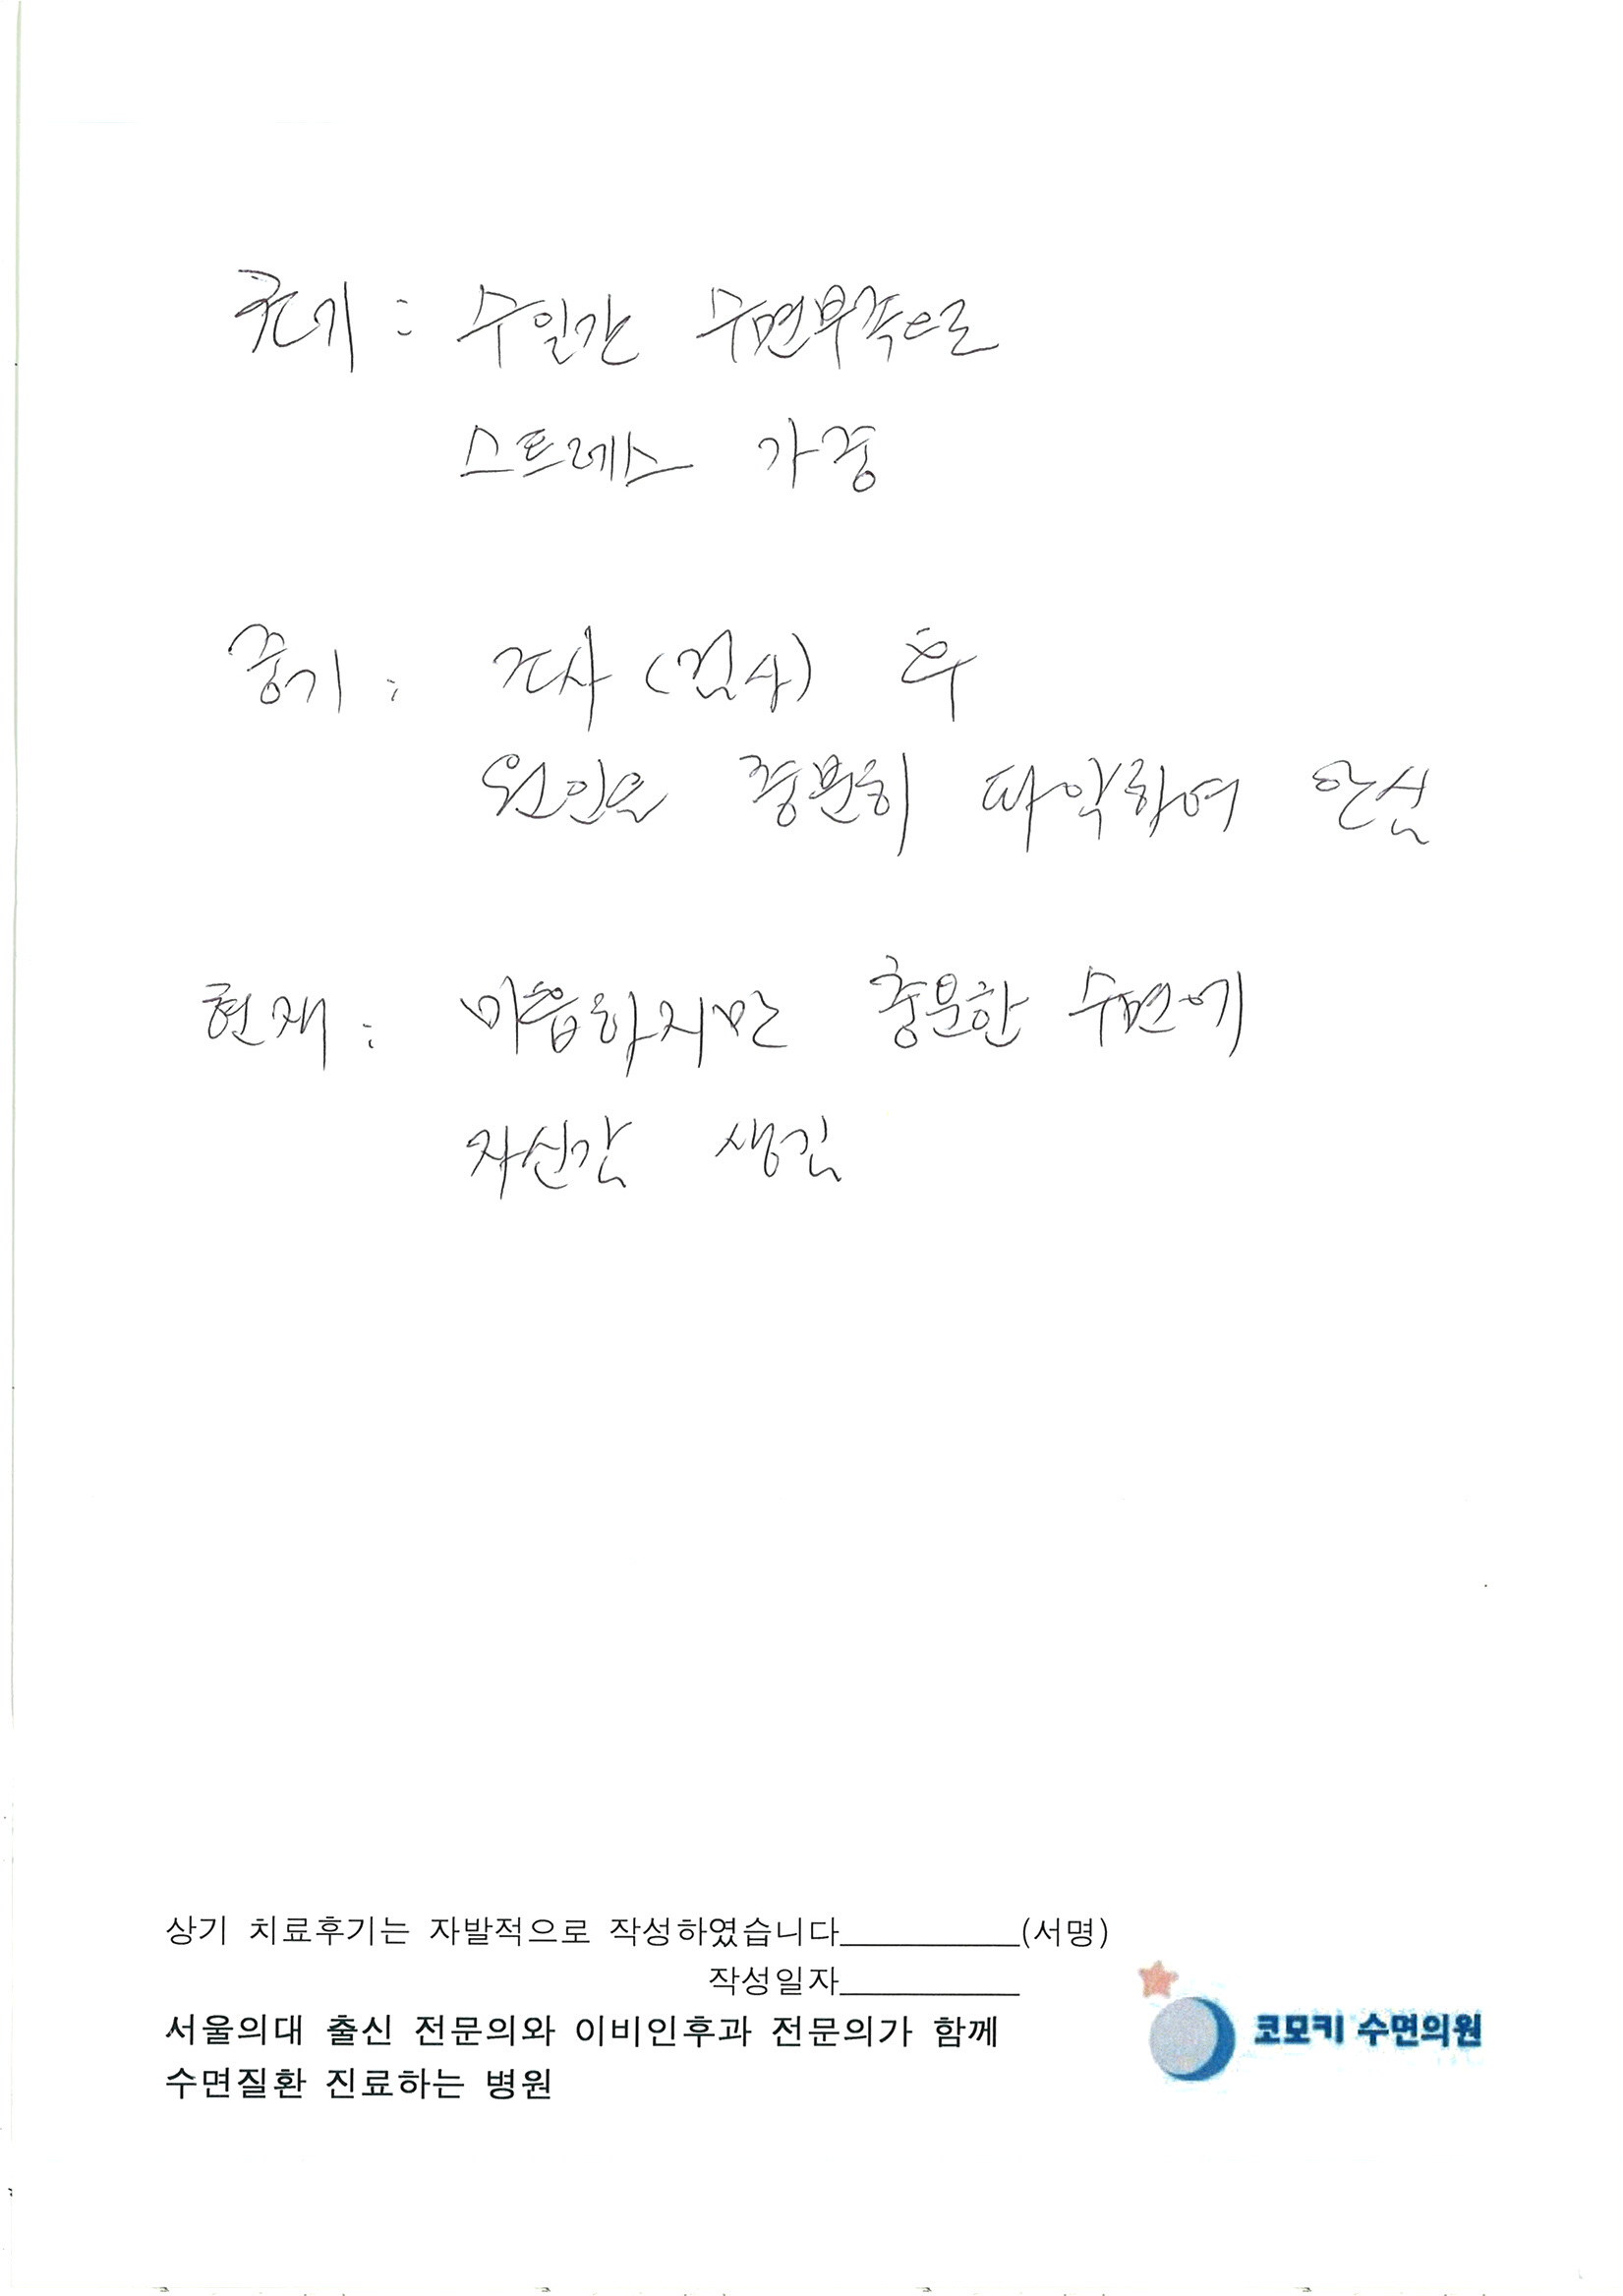 초기 : 수일간 수면부족으로
스트레스 가중
중기 : 조사 (검사) 후
원인을 충분히 파악하여 안심
현재 : 미흡하지만 충분한 수면에
자신감 생김
상기 치료후기는 자발적으로 작성하였습니다__________(서명)
작성일자__________
서울의대 출신 전문의와 이비인후과 전문의가 함께
수면질환 진료하는 병원
코모키 수면의원